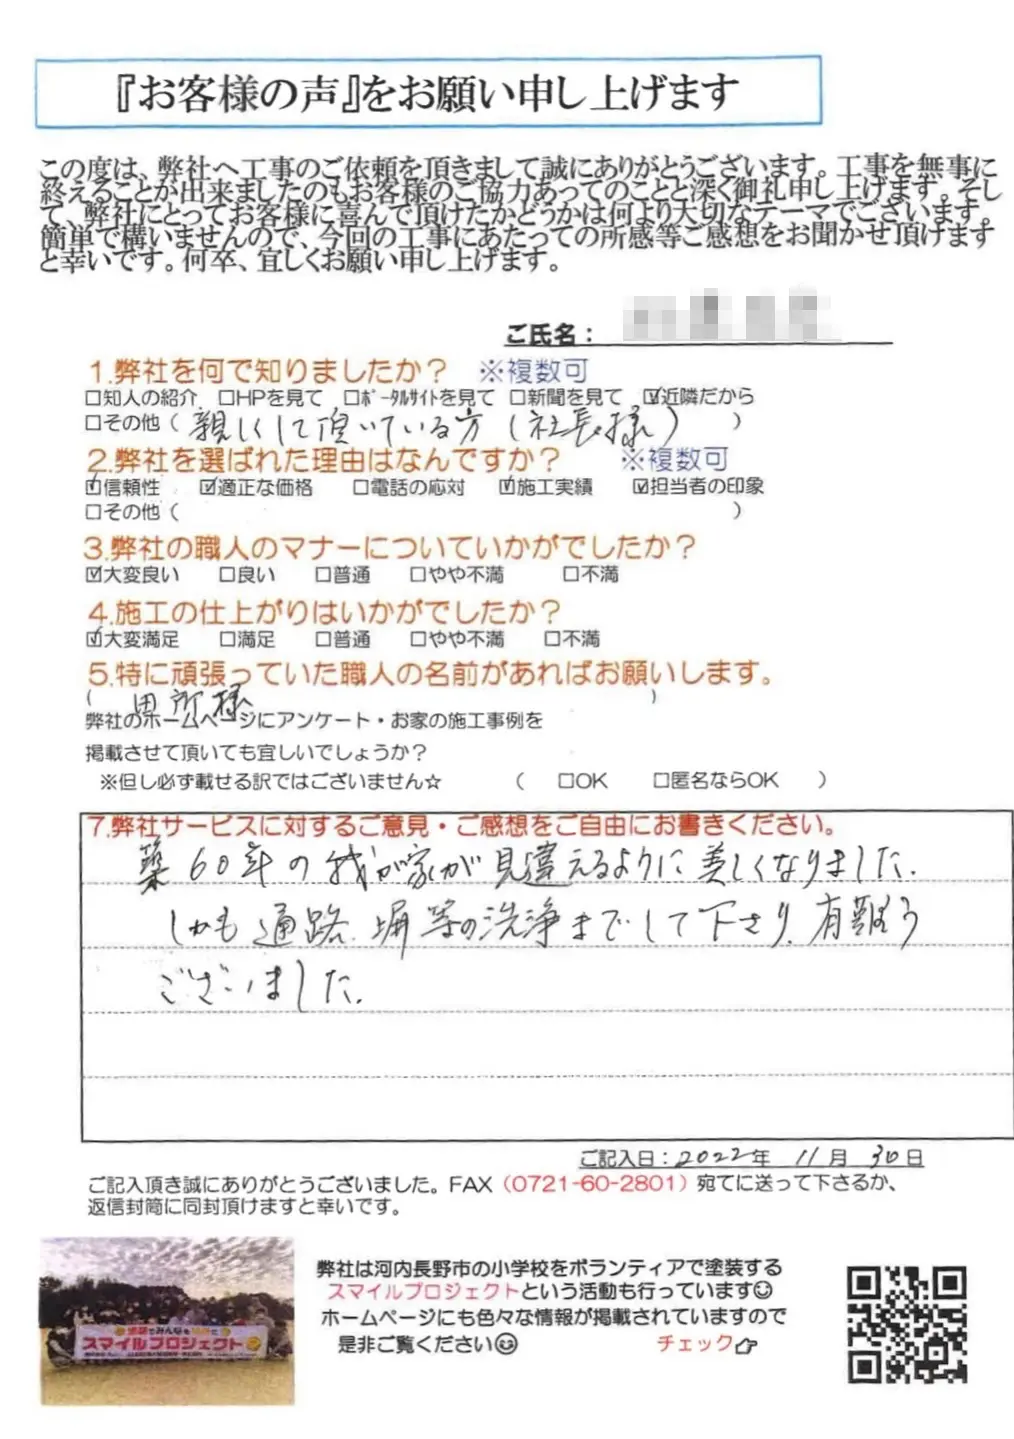 『お客様の声』をお願い申し上げます
この度は、弊社へ工事のご依頼を頂きまして誠にありがとうございます。工事を無事に
終えることが出来ましたのもお客様のご協力あってのことと深く御礼申し上げます。そし
て、弊社にとってお客様に喜んで頂けたかどうかは何より大切なテーマでございます。
簡単で構いませんので、今回の工事にあたっての所感等ご感想をお聞かせ頂けます
と幸いです。何卒、宜しくお願い申し上げます。
ご氏名：
1.弊社を何で知りましたか？ ※複数可
□知人の紹介 □HPを見て □ﾎﾟｰﾀﾙサイトを見て □新聞を見て ☑近隣だから
□その他（ 親しくして頂いている方（社長様） ）
2.弊社を選ばれた理由はなんですか？ ※複数可
☑信頼性 ☑適正な価格 □電話の応対 ☑施工実績 ☑担当者の印象
□その他（ ）
3.弊社の職人のマナーについていかがでしたか？
☑大変良い □良い □普通 □やや不満 □不満
4.施工の仕上がりはいかがでしたか？
☑大変満足 □満足 □普通 □やや不満 □不満
5.特に頑張っていた職人の名前があればお願いします。
（ 田所様 ）
弊社のホームページにアンケート・お家の施工事例を
掲載させて頂いても宜しいでしょうか？
※但し必ず載せる訳ではございません☆ （ □OK □匿名ならOK ）
7.弊社サービスに対するご意見・ご感想をご自由にお書きください。
築60年の我が家が見違えるように美しくなりました.
しかも通路、塀等の洗浄までして下さり、有難う
ございました.
ご記入日：2022年 11月 30日
ご記入頂き誠にありがとうございました。FAX（0721-60-2801）宛てに送って下さるか、
返信封筒に同封頂けますと幸いです。
弊社は河内長野市の小学校をボランティアで塗装する
スマイルプロジェクトという活動も行っています☺
ホームページにも色々な情報が掲載されていますので
是非ご覧ください☺ チェック☞
スマイルプロジェクト